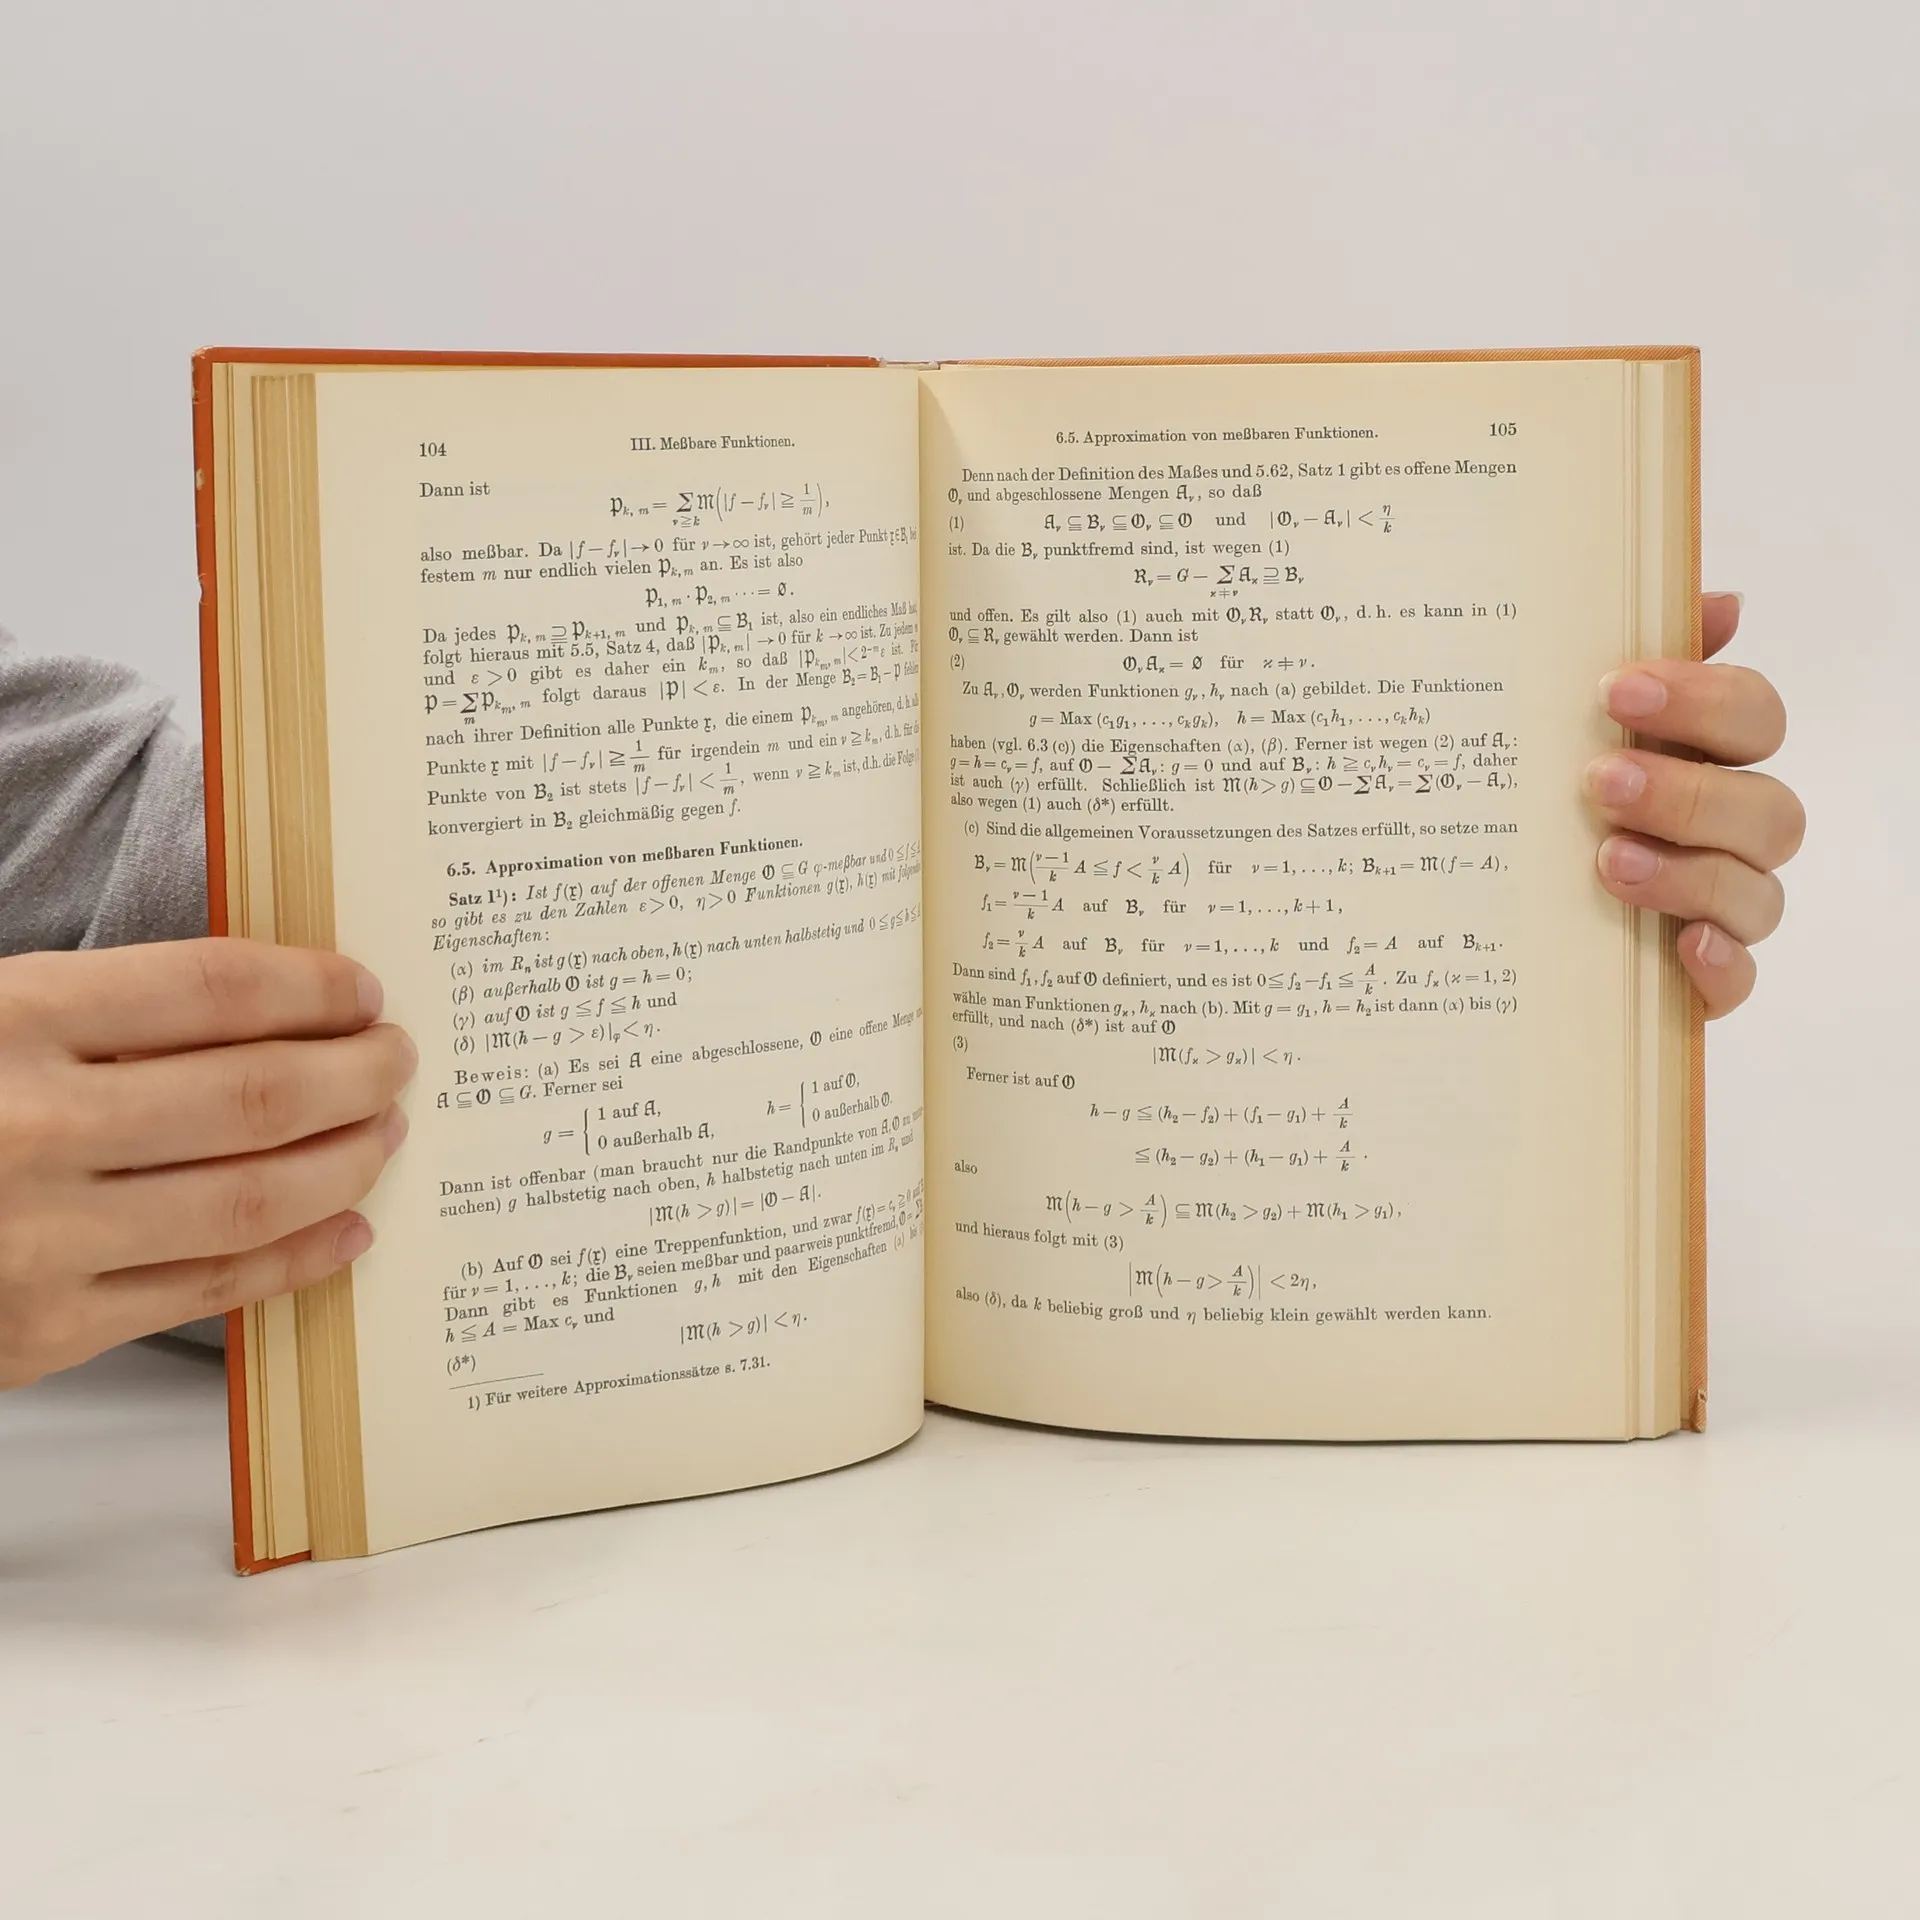 104 III. Meßbare Funktionen.
Dann ist
𝔓ₖ, ₘ = ∑_{ν≧k} 𝔐(|f − f_ν| ≧ 1/m),
also meßbar. Da |f − f_ν| → 0 für ν → ∞ ist, gehört jeder Punkt 𝔵 ∈ 𝔅₁ bei
festem m nur endlich vielen 𝔓ₖ, ₘ an. Es ist also
𝔓₁, ₘ · 𝔓₂, ₘ · · · = Ø.
Da jedes 𝔓ₖ, ₘ ⊇ 𝔓ₖ₊₁, ₘ und 𝔓ₖ, ₘ ⊆ 𝔅₁ ist, also ein endliches Maß hat,
folgt hieraus mit 5.5, Satz 4, daß |𝔓ₖ, ₘ| → 0 für k → ∞ ist. Zu jedem
und ε > 0 gibt es daher ein kₘ, so daß |𝔓_{kₘ, m}| < 2⁻ᵐ ε ist. Für
𝔓 = ∑_m 𝔓_{kₘ, m} folgt daraus |𝔓| < ε. In der Menge 𝔅₂ = 𝔅₁ − 𝔓 fehlen
nach ihrer Definition alle Punkte 𝔵, die einem 𝔓_{kₘ, m} angehören, d. h. alle
Punkte 𝔵 mit |f − f_ν| ≧ 1/m für irgendein m und ein ν ≧ kₘ, d. h. für die
Punkte von 𝔅₂ ist stets |f − f_ν| < 1/m, wenn ν ≧ kₘ ist, d. h. die Folge
konvergiert in 𝔅₂ gleichmäßig gegen f.
6.5. Approximation von meßbaren Funktionen.
Satz 1¹): Ist f(𝔵) auf der offenen Menge 𝔒 ⊆ G φ-meßbar und 0 ≦ f ≦
so gibt es zu den Zahlen ε > 0, η > 0 Funktionen g(𝔵), h(𝔵) mit folgenden
Eigenschaften:
(α) im Rₙ ist g(𝔵) nach oben, h(𝔵) nach unten halbstetig und 0 ≦ g ≦ h ≦
(β) außerhalb 𝔒 ist g = h = 0;
(γ) auf 𝔒 ist g ≦ f ≦ h und
(δ) |𝔐(h − g > ε)|_φ < η.
Beweis: (a) Es sei 𝔄 eine abgeschlossene, 𝔒 eine offene Menge und
𝔄 ⊆ 𝔒 ⊆ G. Ferner sei
g = { 1 auf 𝔄, 0 außerhalb 𝔄, h = { 1 auf 𝔒, 0 außerhalb 𝔒.
Dann ist offenbar (man braucht nur die Randpunkte von 𝔄, 𝔒 zu
suchen) g halbstetig nach oben, h halbstetig nach unten im Rₙ und
|𝔐(h > g)| = |𝔒 − 𝔄|.
(b) Auf 𝔒 sei f(𝔵) eine Treppenfunktion, und zwar f(𝔵) = c_ν ≧ 0 auf
für ν = 1, . . ., k; die 𝔅_ν seien meßbar und paarweis punktfremd, 𝔒 =
Dann gibt es Funktionen g, h mit den Eigenschaften (α) bis
h ≦ A = Max c_ν und
(δ*) |𝔐(h > g)| < η.
1) Für weitere Approximationssätze s. 7.31.
6.5. Approximation von meßbaren Funktionen. 105
Denn nach der Definition des Maßes und 5.62, Satz 1 gibt es offene Mengen
𝔒_ν und abgeschlossene Mengen 𝔄_ν, so daß
(1) 𝔄_ν ⊆ 𝔅_ν ⊆ 𝔒_ν ⊆ 𝔒 und |𝔒_ν − 𝔄_ν| < η/k
ist. Da die 𝔅_ν punktfremd sind, ist wegen (1)
ℜ_ν = G − ∑_{ϰ≠ν} 𝔄_ϰ ⊇ 𝔅_ν
und offen. Es gilt also (1) auch mit 𝔒_ν ℜ_ν statt 𝔒_ν, d. h. es kann in (1)
𝔒_ν ⊆ ℜ_ν gewählt werden. Dann ist
(2) 𝔒_ν 𝔄_ϰ = Ø für ϰ ≠ ν.
Zu 𝔄_ν, 𝔒_ν werden Funktionen g_ν, h_ν nach (a) gebildet. Die Funktionen
g = Max (c₁g₁, . . ., cₖgₖ), h = Max (c₁h₁, . . ., cₖhₖ)
haben (vgl. 6.3 (c)) die Eigenschaften (α), (β). Ferner ist wegen (2) auf 𝔄_ν:
g = h = c_ν = f, auf 𝔒 − ∑𝔄_ν: g = 0 und auf 𝔅_ν: h ≧ c_ν h_ν = c_ν = f, daher
ist auch (γ) erfüllt. Schließlich ist 𝔐(h > g) ⊆ 𝔒 − ∑𝔄_ν = ∑(𝔒_ν − 𝔄_ν),
also wegen (1) auch (δ*) erfüllt.
(c) Sind die allgemeinen Voraussetzungen des Satzes erfüllt, so setze man
𝔅_ν = 𝔐((ν−1)/k A ≦ f < ν/k A) für ν = 1, . . ., k; 𝔅ₖ₊₁ = 𝔐(f = A),
f₁ = (ν−1)/k A auf 𝔅_ν für ν = 1, . . ., k + 1,
f₂ = ν/k A auf 𝔅_ν für ν = 1, . . ., k und f₂ = A auf 𝔅ₖ₊₁.
Dann sind f₁, f₂ auf 𝔒 definiert, und es ist 0 ≦ f₂ − f₁ ≦ A/k. Zu f_ϰ (ϰ = 1, 2)
wähle man Funktionen g_ϰ, h_ϰ nach (b). Mit g = g₁, h = h₂ ist dann (α) bis (γ)
erfüllt, und nach (δ*) ist auf 𝔒
(3) |𝔐(f_ϰ > g_ϰ)| < η.
Ferner ist auf 𝔒
h − g ≦ (h₂ − f₂) + (f₁ − g₁) + A/k
≦ (h₂ − g₂) + (h₁ − g₁) + A/k .
also
𝔐(h − g > A/k) ⊆ 𝔐(h₂ > g₂) + 𝔐(h₁ > g₁),
und hieraus folgt mit (3)
|𝔐(h − g > A/k)| < 2η,
also (δ), da k beliebig groß und η beliebig klein gewählt werden kann.